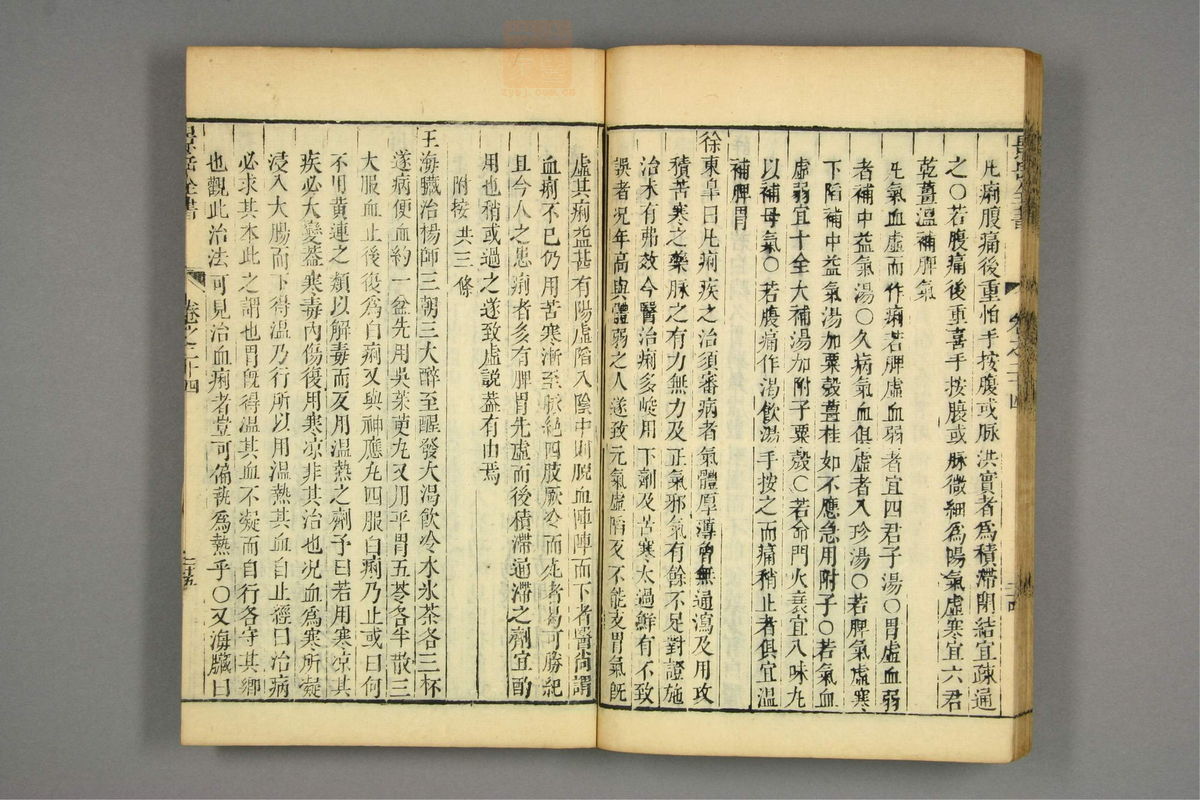 凡痢腹痛後重怕手按腹或脉洪實者爲積滯閉結宜疎通
之〇若腹痛後重喜手按腹或脉微細爲陽氣虛寒宜六君
乾薑溫補脾氣
凡氣血虛而作痢若脾虛血弱者宜四君子湯〇胃虛血弱
者補中益氣湯〇久病氣血俱虛者八珍湯〇若脾氣虛寒
下陷補中益氣湯加粟殼薑桂如不應急用附子〇若氣血
虛弱宜十全大補湯加附子粟殼〇若命門火衰宜八味丸
以補母氣〇若腹痛作渴飲湯手按之而痛稍止者俱宜溫
補脾胃
徐東皐曰凡痢疾之治須審病者氣體厚薄曾無通瀉及用攻
積苦寒之藥脉之有力無力及正氣邪氣有餘不足對證施
治未有弗效今醫治痢多峻用下劑及苦寒太過鮮有不致
誤者况年高與體弱之人遂致元氣虛陷反不能支胃氣旣
景岳全書
卷之二十四
虛其痢益甚有陽虛陷入陰中則脫血陣陣而下者醫尙謂
血痢不已仍用苦寒漸至脉絕四肢厥冷而死者曷可勝紀
且今人之患痢者多有脾胃先虛而後積滯通滯之劑宜酌
用也稍或過之遂致虛說蓋有由焉
附按 共三條
王海臟治楊師三朝三大醉至醒發大渴飲冷水氷茶各三杯
遂病便血約一盆先用吳茱萸丸又用平胃五苓各半散三
大服血止後復爲白痢又與神應丸四服白痢乃止或曰何
不用黃連之類以解毒而反用溫熱之劑予曰若用寒凉其
疾必大變蓋寒毒內傷復用寒凉非其治也况血爲寒所凝
浸入大腸而下得溫乃行所以用溫熱其血自止經曰治病
必求其本此之謂也胃旣得溫其血不凝而自行各守其鄉
也觀此治法可見治血痢者豈可偏執爲熱乎〇又海臟曰
景岳全書
卷之二十四